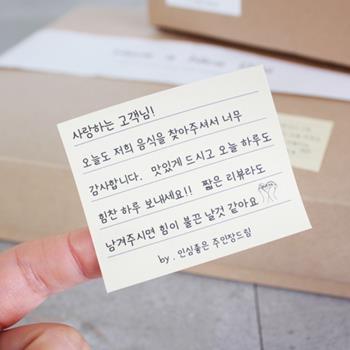 사랑하는 고객님!
오늘도 저희 음식을 찾아주셔서 너무
감사합니다. 맛있게 드시고 오늘 하루도
힘찬 하루 보내세요!! 짧은 리뷰라도
남겨주시면 힘이 불끈 날것 같아요
by. 인심좋은 주인장드림